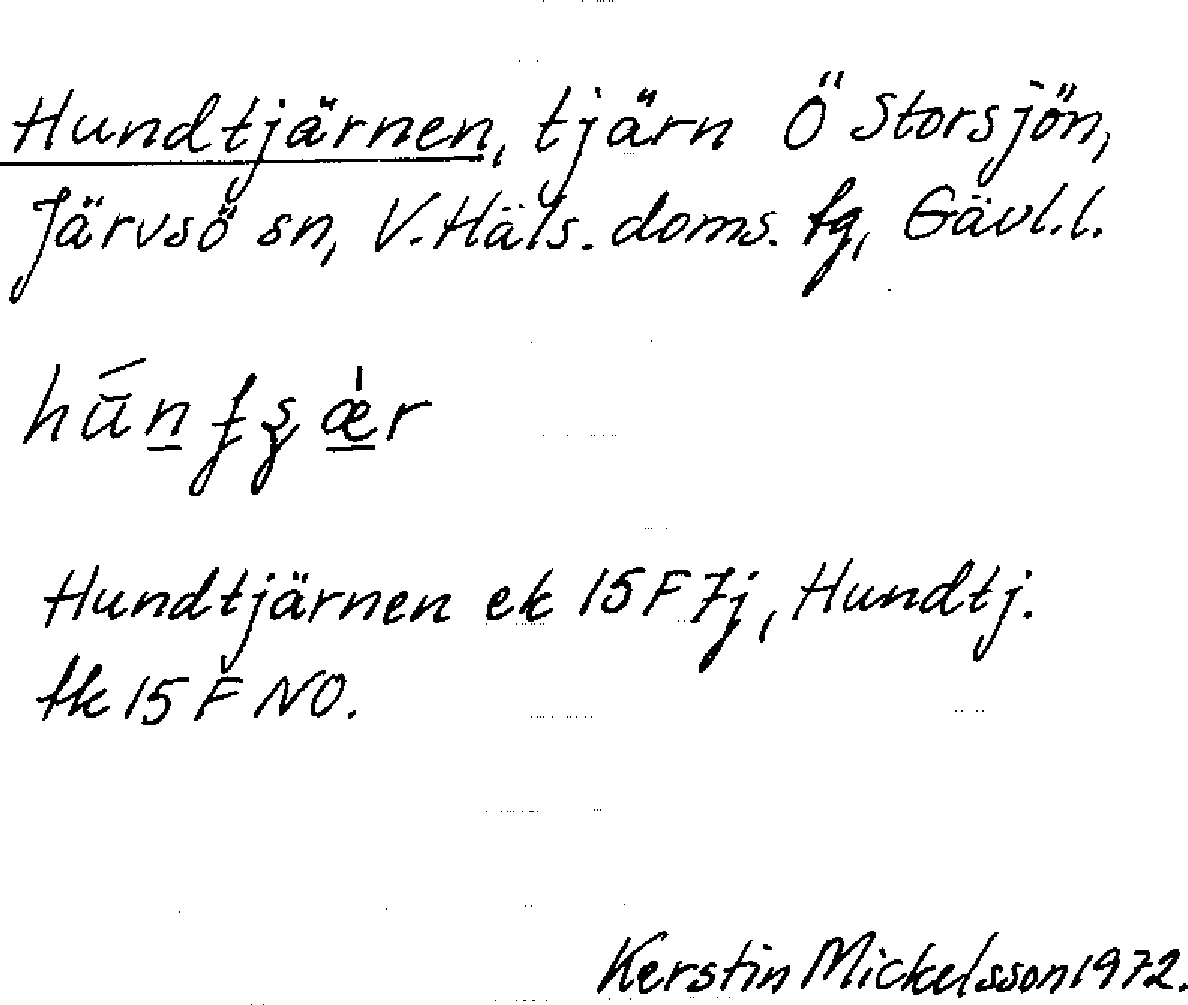 Hundtjärnen, tjärn Ö Storsjön,
Järvsö sn, V. Häls. doms. fg, Gävl.l.
Hundtjärnen ek 15F7j, Hundtj.
tk 15 F NO.
Kerstin Mickelsson 1972.